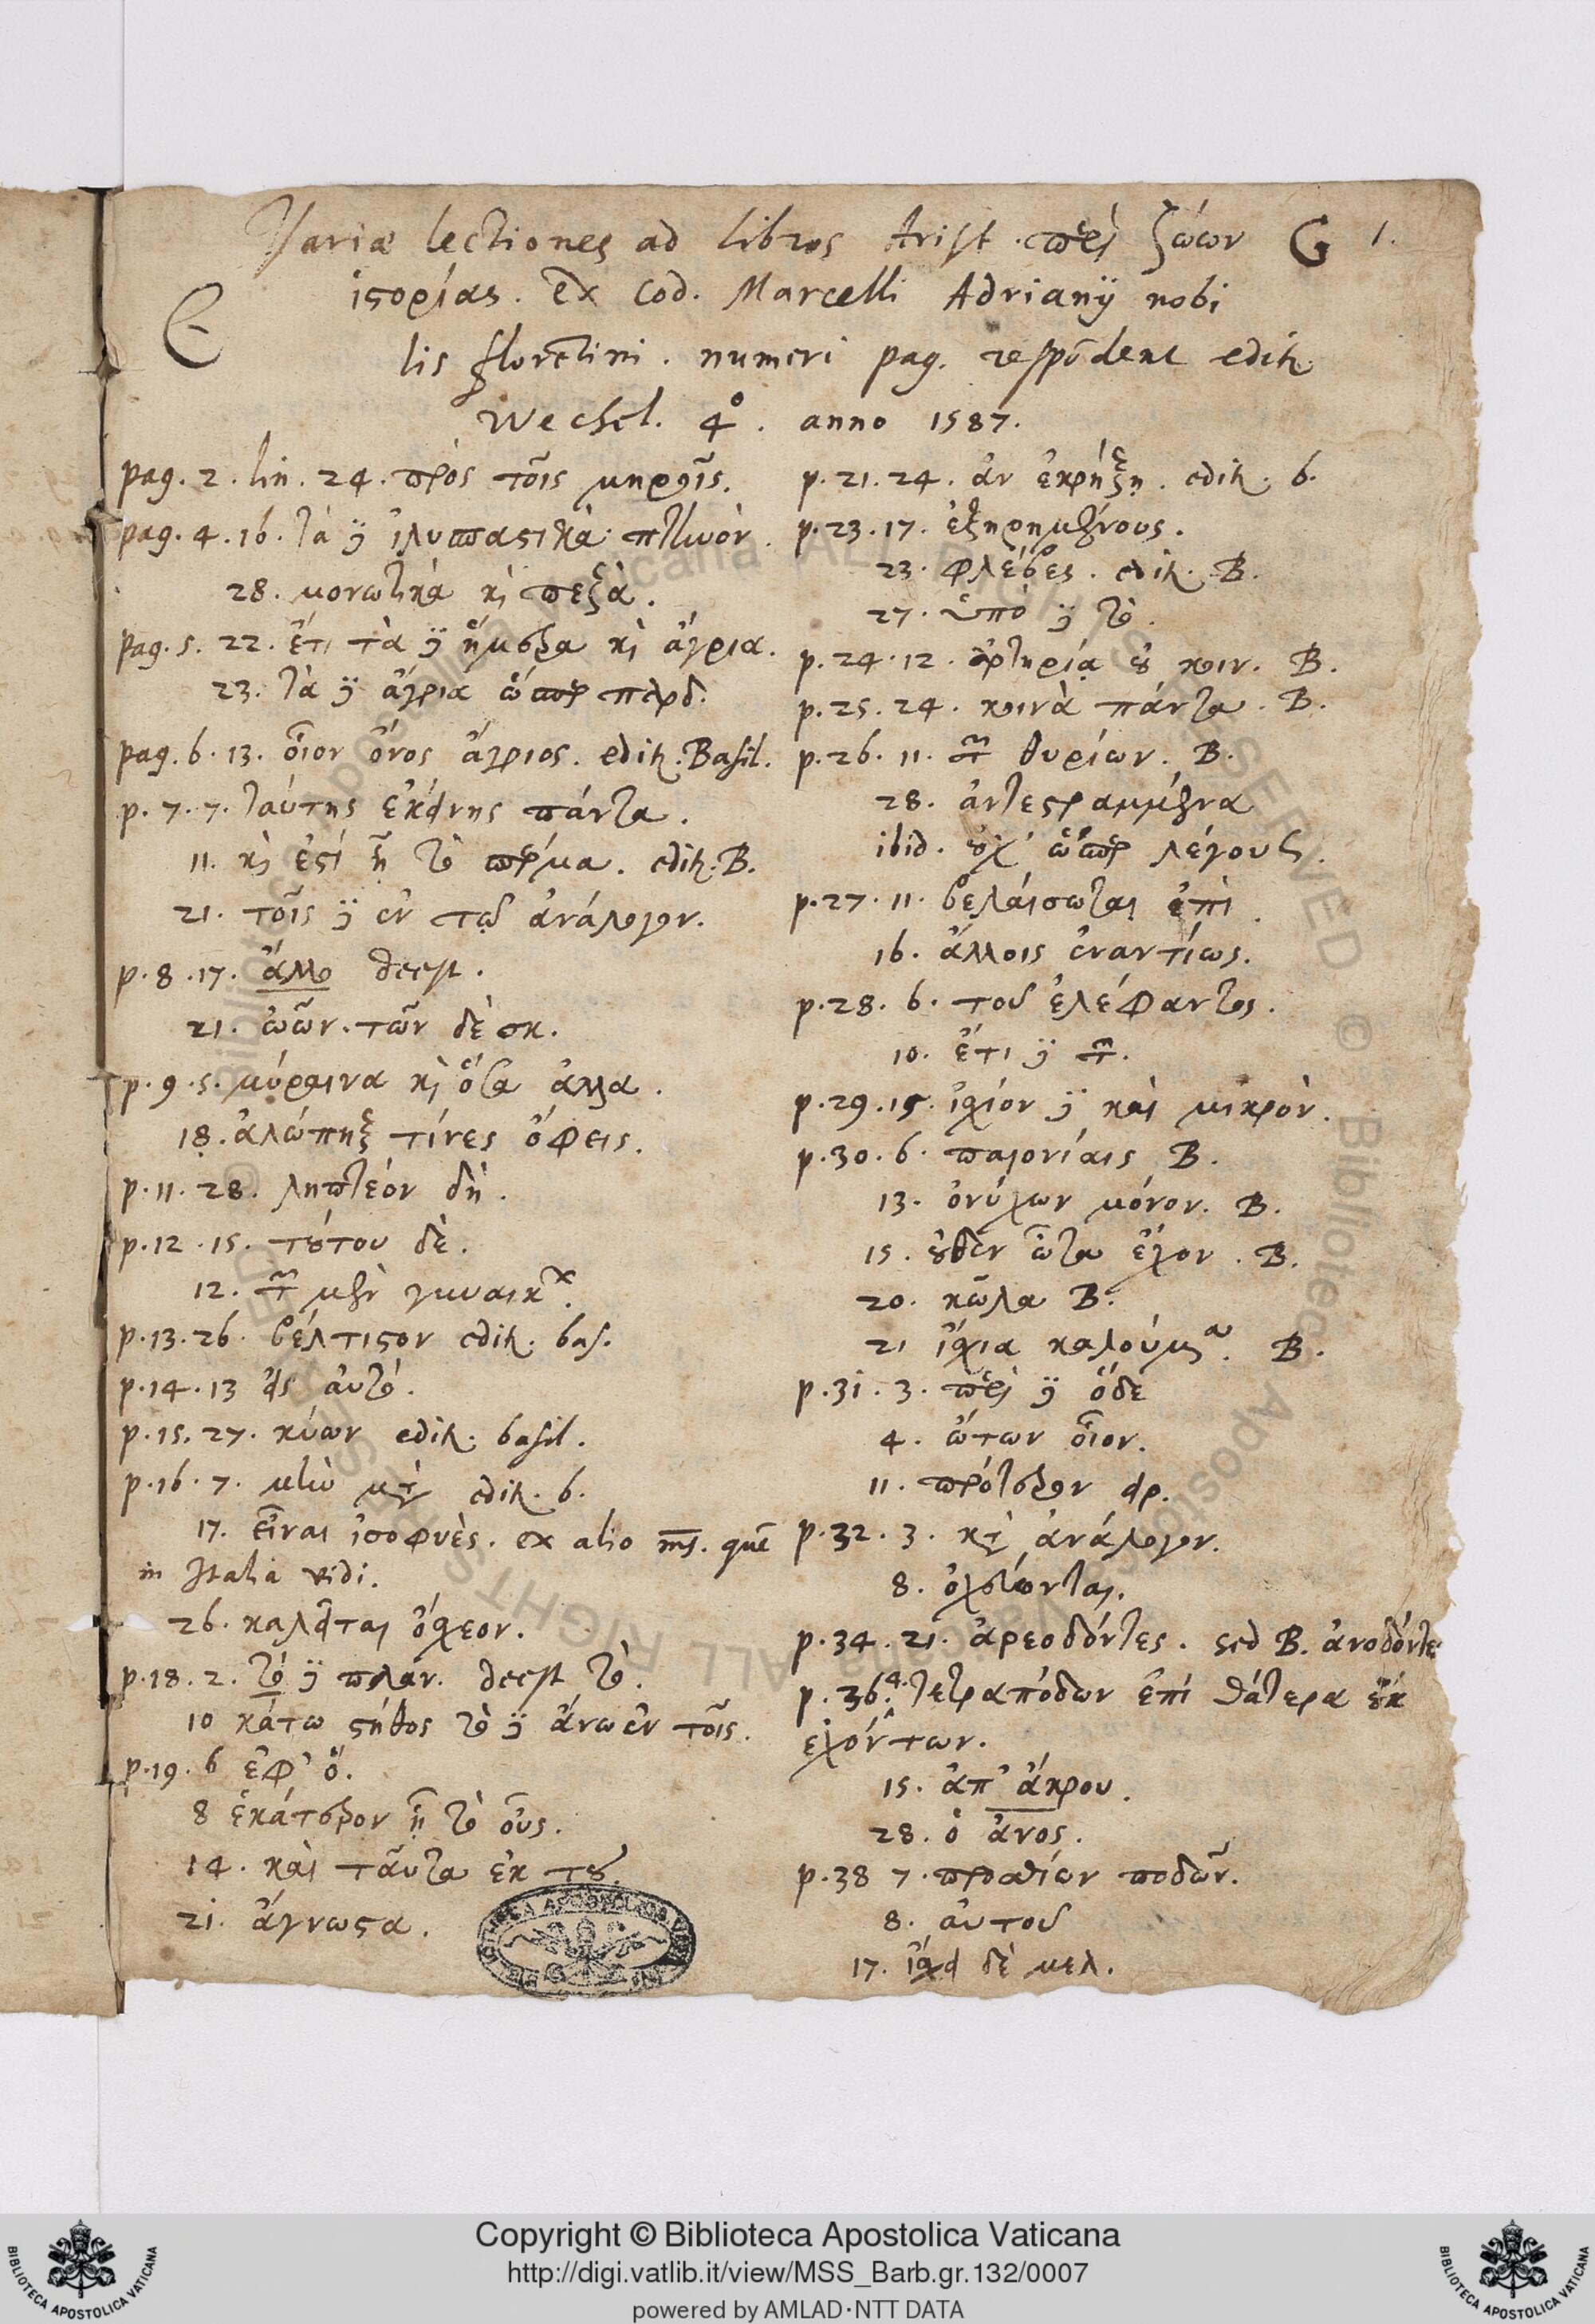 Variæ lectiones ad libros Arist. περὶ ζώων G 1.
ἱςορίας. Ex cod. Marcelli Adrianÿ nobi
E
lis florētini. numeri pag. respōdent edit.
Wechel. 4°. anno 1587.
pag. 2. lin. 24. πρὸς τοῖς μηροῖς.
pag. 4. 16. τὰ δὲ ἰλυσπαςικὰ· πτηνὸν.
28. μονωτικὰ κ̀ πεζὰ.
pag. 5. 22. ἔτι τὰ δὲ ἥμερα κ̀ ἄγρια.
23. τὰ δὲ ἄγρια ὥσπερ περδ.
pag. 6. 13. οἷον ὄνος ἄγριος. edit. Basil.
p. 7. 7. ταύτης ἐκείνης πάντα.
11. κ̀ ἐςί ᾗ τὸ σπέρμα. edit. B.
21. τοῖς δὲ ἐν τῷ ἀνάλογον.
p. 8. 17. ἄλλο deest.
21. ὠῶν. τῶν δὲ σκ.
p. 9. 5. μύραινα κ̀ ὅσα ἄλλα.
18. ἀλώπηξ τίνες ὄφεις.
p. 11. 28. ληπτέον δὴ.
p. 12. 15. τȣ́του δὲ.
12. τῶν μὲν γυναικ
p. 13. 26. βέλτιςον edit. bas.
p. 14. 13 εἰς αὐτό.
p. 15. 27. κύων edit. basil.
p. 16. 7. μὴν edit. b.
17. εἶναι ἰσοφυὲς. ex alio ms. quē
in Italia vidi.
26. καλεῖται ὄσχεον.
p. 18. 2. τό δὲ πλάν. deest τὸ.
10 κάτω ςήθος τὸ δὲ ἄνω ἐν τοῖς.
p. 19. 6 ἐφ' ὅ.
8 ἑκάτερον ᾖ τὸ οὖς.
14. καὶ ταῦτα ἐκ τȣ͂.
21. ἄγνωςα.
p. 21. 24. ἀν ἐκρήξῃ. edit. b.
p. 23. 17. ἐξηρημένους.
23. φλέβες. edit. B.
27. ὑπὸ δὲ τὸ.
p. 24. 12. ἀρτηρίᾳ ȣ̓ κοιν. B.
p. 25. 24. κοινὰ πάντα. B.
p. 26. 11. τῶν θυρίων. B.
28. ἀντεςραμμένα
ibid. ȣ̓χ' ὥσπερ λέγουσι.
p. 27. 11. βελαίσωται ἐπὶ.
16. ἄλλοις ἐναντίως.
p. 28. 6. τοῦ ἐλέφαντος.
10. ἔτι δὲ τῶν.
p. 29. 15. ἰσχίον δὲ καὶ μικρὸν.
p. 30. 6. παιονίαις B.
13. ὀνύχων μόνον. B.
15. ȣ̓δὲν ὦτα ἔχον. B.
20. κῶλα B.
21 ἴσχια καλούμενα. B.
p. 31. 3. περὶ δὲ ὅδε
4. ὤτων οἷον.
11. πρότερον εἰρ.
p. 32. 3. ἀνάλογον.
8. ὀχεύονται.
p. 34. 21. ἀρεοδόντες. sed B. ἀνοδόντε
p. 36. 4. τετραπόδων ἐπὶ θάτερα ȣ̓κ
ἐχόντων.
15. ἀπ' ἄκρου.
28. ὁ ἄνος.
p. 38 7. προσθίων ποδῶν.
8. αὐτοῦ
17. ἴσχει δὲ μελ.
Copyright © Biblioteca Apostolica Vaticana
http://digi.vatlib.it/view/MSS_Barb.gr.132/0007
powered by AMLAD·NTT DATA
BIBLIOTECA APOSTOLICA VATICANA
BIBLIOTECA APOSTOLICA VATICANA